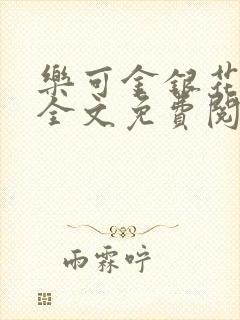 樂可金銀花
全文免費閱
雨霖咛